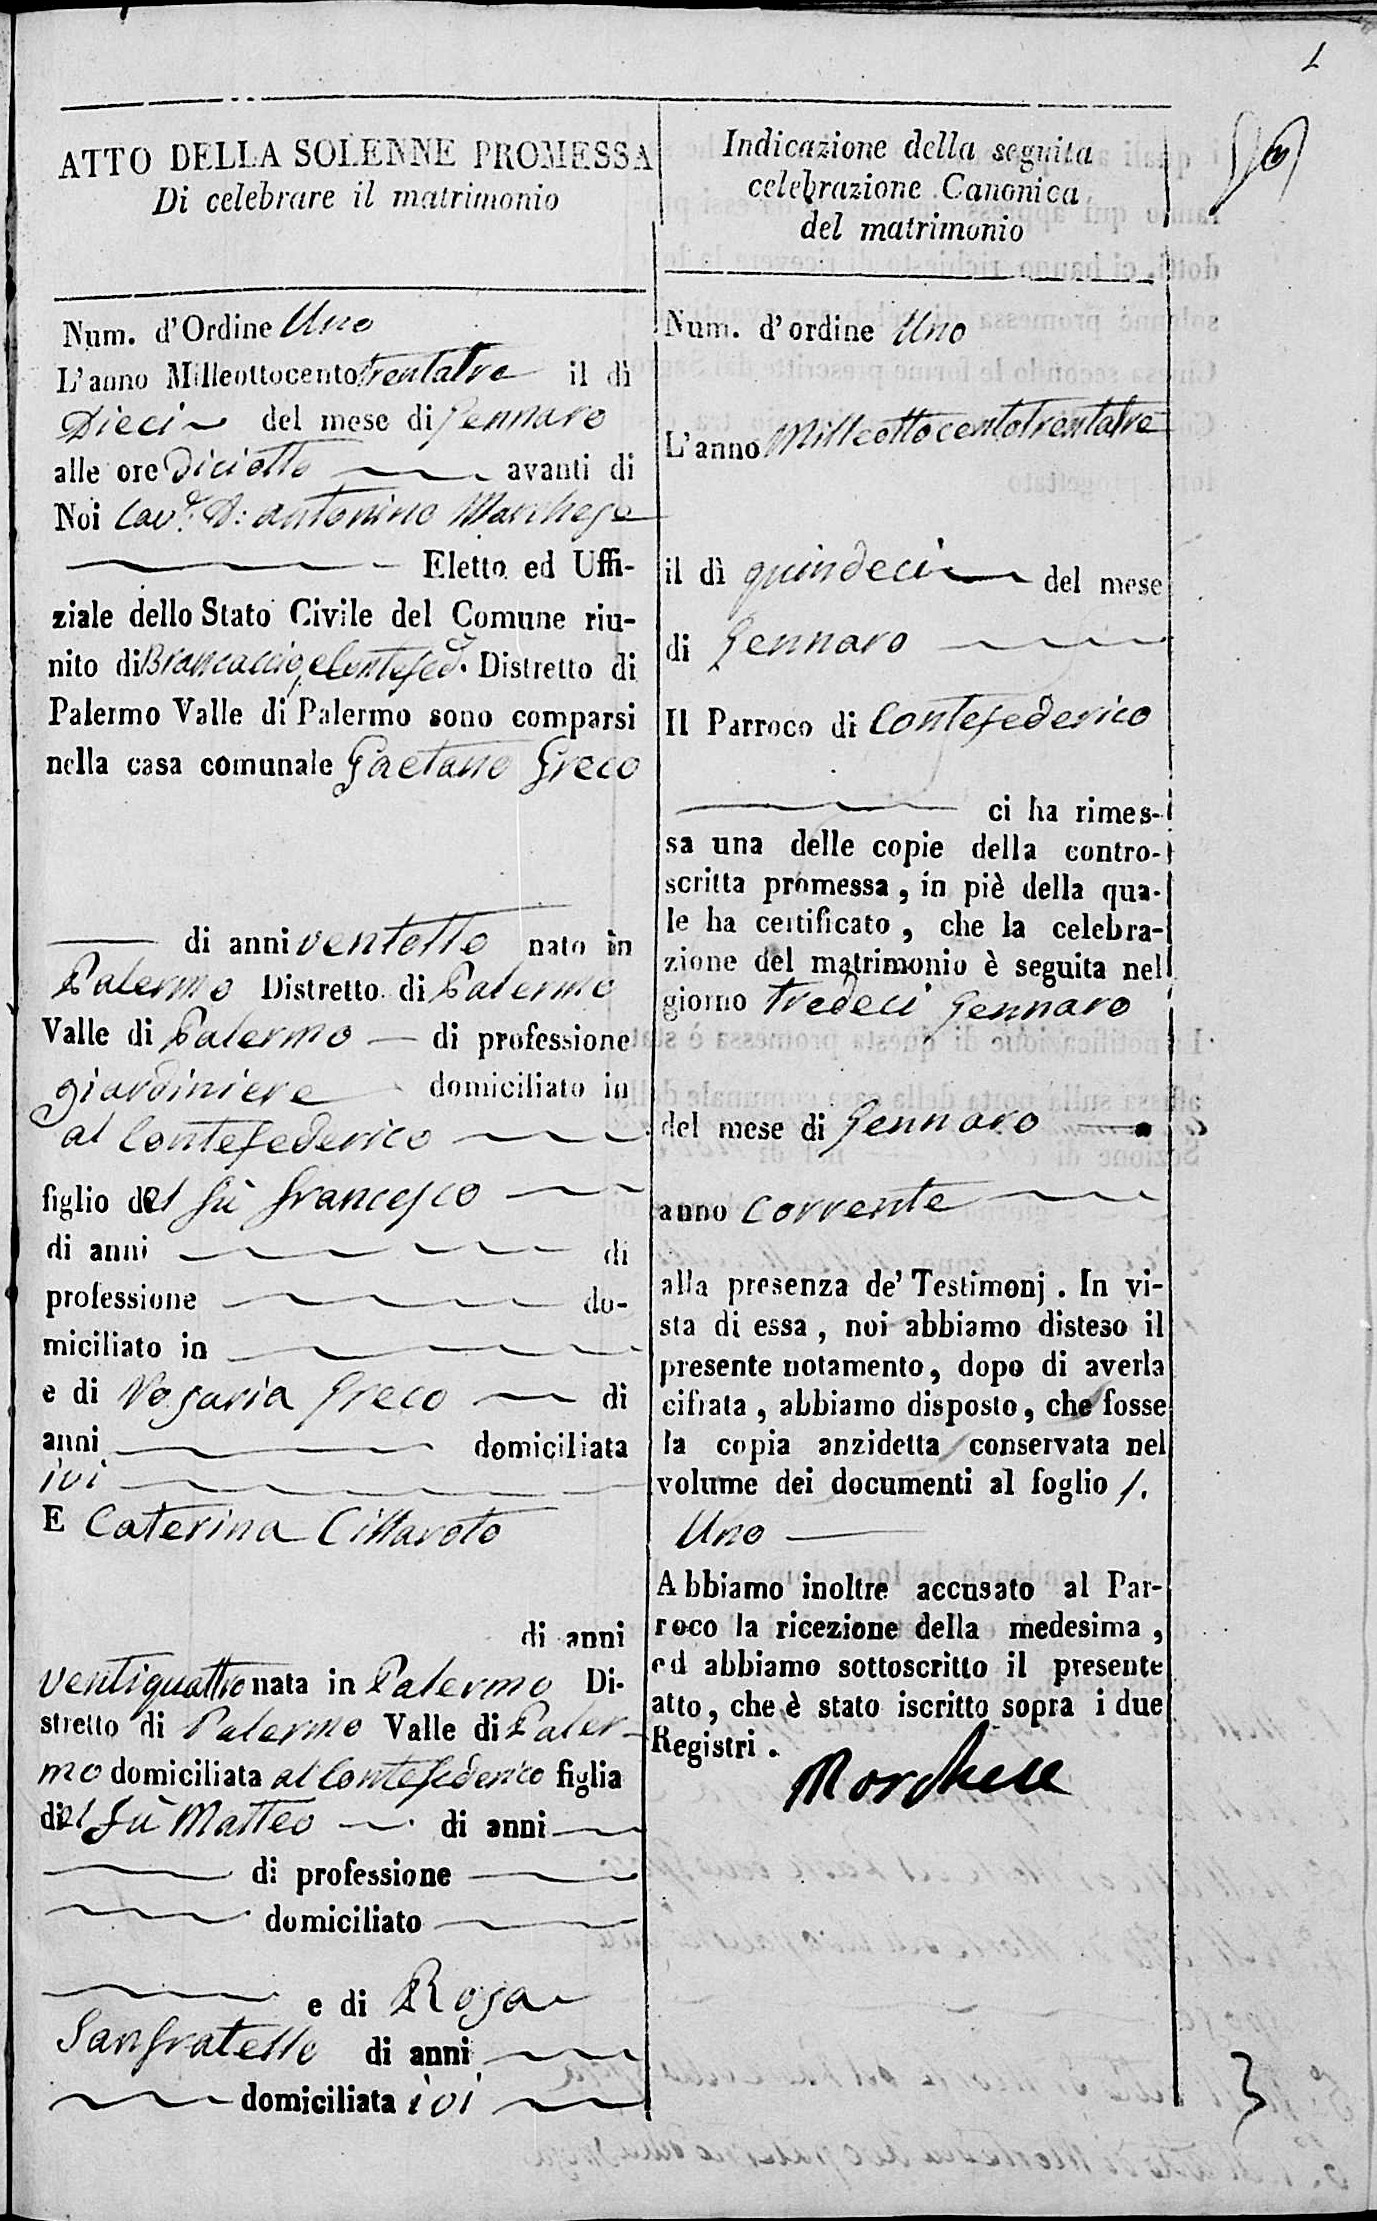 1
ATTO DELLA SOLENNE PROMESSA
Di celebrare il matrimonio
Num. d'Ordine Uno
L'anno Milleottocento trentatre il di
Dieci del mese di Gennaro
alle ore Diciotto avanti di
Noi Cav.r D: Antonino Marchese
Eletto ed Uffi-
ziale dello Stato Civile del Comune riu-
nito di Brancaccio, e Contefed.o Distretto di
Palermo Valle di Palermo sono comparsi
nella casa comunale Gaetano Greco
di anni ventotto nato in
Palermo Distretto di Palermo
Valle di Palermo di professione
giardiniere domiciliato in
al Contefederico
figlio del fù Francesco
di anni di
professione do-
miciliato in
e di Rosaria Greco di
anni domiciliata
ivi
E Caterina Cillaroto
di anni
ventiquattro nata in Palermo Di-
stretto di Palermo Valle di Paler-
mo domiciliata al Contefederico figlia
del fù Matteo di anni
di professione
domiciliato
e di Rosa
Sanfratello di anni
domiciliata ivi
Indicazione della seguita
celebrazione Canonica
del matrimonio
Num. d'ordine Uno
L'anno Milleottocentotrentatre
il dì quindeci del mese
di Gennaro
Il Parroco di Contefederico
ci ha rimes-
sa una delle copie della contro-
scritta promessa, in piè della qua-
le ha certificato, che la celebra-
zione del matrimonio è seguita nel
giorno tredeci Gennaro
del mese di Gennaro
anno corrente
alla presenza de' Testimonj. In vi-
sta di essa, noi abbiamo disteso il
presente notamento, dopo di averla
cifrata, abbiamo disposto, che fosse
la copia anzidetta conservata nel
volume dei documenti al foglio 1.
Uno
Abbiamo inoltre accusato al Par-
roco la ricezione della medesima,
ed abbiamo sottoscritto il presente
atto, che è stato iscritto sopra i due
Registri.
Marchese
3